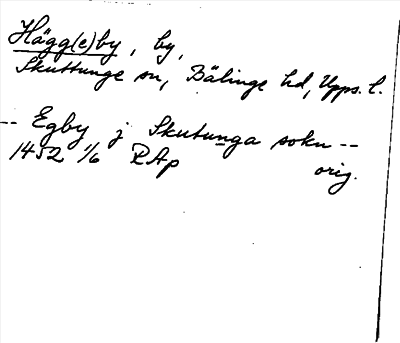 Hägg(e)by, by,
Skuttunge sn, Bälinge hd, Upps. l.
-- Egby j Skutunga sokn --
1452 1/6 RAp orig.